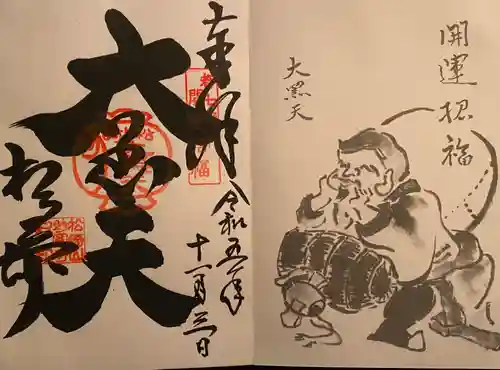 開運招福
大黒天
奉拝
大黒天
令和五年
十一月三日